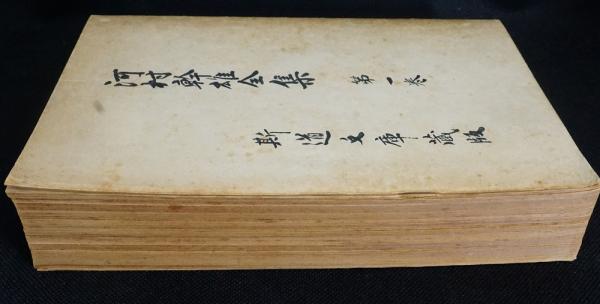 河村幹雄全集 第一巻
斯道文庫蔵版